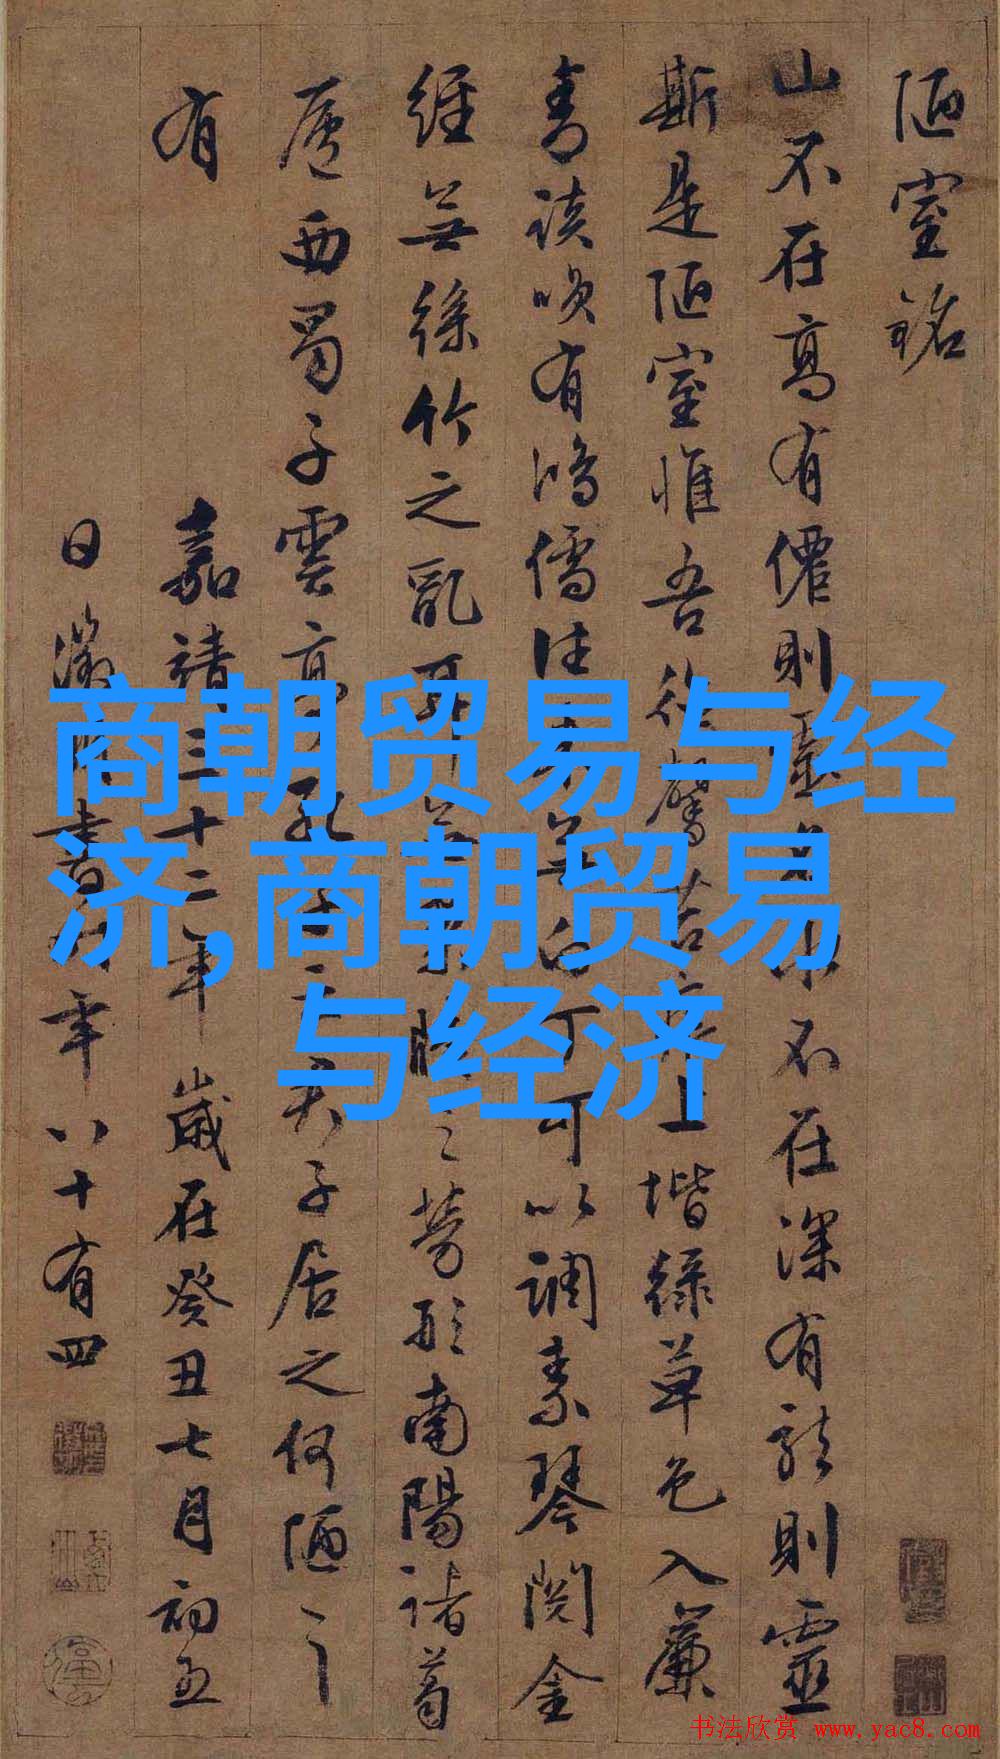 陋室銘
山不在高有僊則水不在深有龍則靈
斯是陋室惟吾德馨苔痕上堦緑草色入簾
青談咲有鴻儒往來無白丁可以調素琴閱金
經無絲竹之亂耳無案牘之勞形南陽諸葛
廬西蜀子雲亭孔子云君子居之何陋之
有
嘉靖三十二年歲在癸丑七月初五
日徵明書時年八十有四
商朝贸易与经
济,商朝贸易
与经济
书法欣赏 www.yac8.com